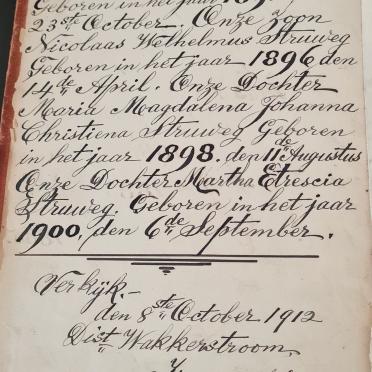 Geboren in het jaar
23ste October. Onze zoon
Nicolaas Welhelmus Struweg
Geboren in het jaar 1896 den
14de April. Onze Dochter
Maria Magdalena Johanna
Christiena Struweg Geboren
in het jaar 1898. den 11de Augustus
Onze Dochter Martha Etrescia
Struweg. Geboren in het jaar
1900, den 6de September.
Verkÿk.-
den 8ste October 1912
Dist Wakkerstroom